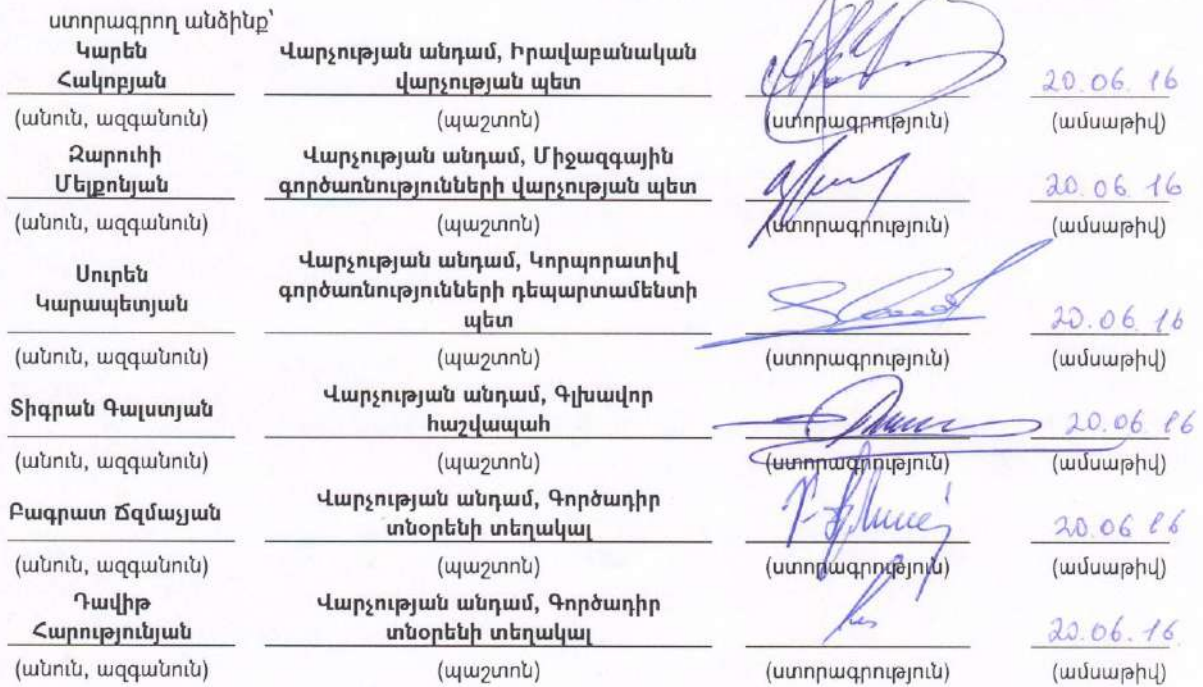 ստորագրող անձինք՝
Կարեն Վարչության անդամ, Իրավաբանական
Հակոբյան վարչության պետ 20.06.16
(անուն, ազգանուն) (պաշտոն) (ստորագրություն) (ամսաթիվ)
Զարուհի Վարչության անդամ, Միջազգային
Մելքոնյան գործառնությունների վարչության պետ 20.06.16
(անուն, ազգանուն) (պաշտոն) (ստորագրություն) (ամսաթիվ)
Սուրեն Վարչության անդամ, Կորպորատիվ
Կարապետյան գործառնությունների դեպարտամենտի
պետ 20.06.16
(անուն, ազգանուն) (պաշտոն) (ստորագրություն) (ամսաթիվ)
Տիգրան Գալստյան Վարչության անդամ, Գլխավոր
հաշվապահ 20.06.16
(անուն, ազգանուն) (պաշտոն) (ստորագրություն) (ամսաթիվ)
Բագրատ Ճզմաչյան Վարչության անդամ, Գործադիր
տնօրենի տեղակալ 20.06.16
(անուն, ազգանուն) (պաշտոն) (ստորագրություն) (ամսաթիվ)
Դավիթ Վարչության անդամ, Գործադիր
Հարությունյան տնօրենի տեղակալ 20.06.16
(անուն, ազգանուն) (պաշտոն) (ստորագրություն) (ամսաթիվ)